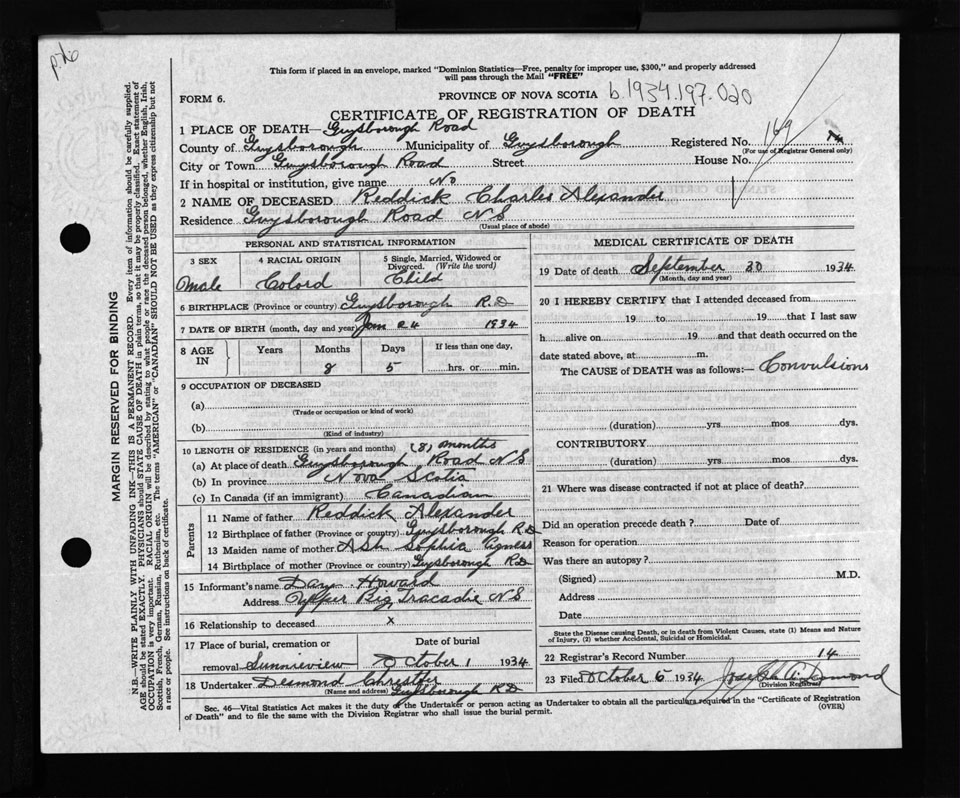 p76
This form if placed in an envelope, marked "Dominion Statistics—Free, penalty for improper use, $300," and properly addressed
will pass through the Mail "FREE"
FORM 6.
PROVINCE OF NOVA SCOTIA b.1934.197.020
CERTIFICATE OF REGISTRATION OF DEATH
169
1 PLACE OF DEATH— Guysborough Road
County of Guysborough Municipality of Guysborough Registered No.
(For use of Registrar General only)
City or Town Guysborough Road Street House No.
If in hospital or institution, give name No
2 NAME OF DECEASED Reddick Charles Alexander
Residence Guysborough Road N S
(Usual place of abode)
PERSONAL AND STATISTICAL INFORMATION
3 SEX 4 RACIAL ORIGIN 5 Single, Married, Widowed or Divorced. (Write the word)
male Colord Child
6 BIRTHPLACE (Province or country) Guysborough R.D
7 DATE OF BIRTH (month, day and year) Jan 24 1934
8 AGE IN Years Months Days If less than one day,
8 5 hrs. or min.
9 OCCUPATION OF DECEASED
(a)
(Trade or occupation or kind of work)
(b)
(Kind of industry)
10 LENGTH OF RESIDENCE (in years and months) (8) months
(a) At place of death Guysborough Road N S
(b) In province Nova Scotia
(c) In Canada (if an immigrant) Canadian
Parents
11 Name of father Reddick Alexander
12 Birthplace of father (Province or country) Guysborough R D
13 Maiden name of mother Ash Sophia Agness
14 Birthplace of mother (Province or country) Guysborough R D
15 Informant's name Day Howard
Address Upper Big Tracadie N S
16 Relationship to deceased x
17 Place of burial, cremation or Date of burial
removal Sunnreview October 1 1934
18 Undertaker Desmond
(Name and address) Guysborough R D
MEDICAL CERTIFICATE OF DEATH
19 Date of death September 30 1934
(Month, day and year)
20 I HEREBY CERTIFY that I attended deceased from
19 to 19 that I last saw
h alive on 19 and that death occurred on the
date stated above, at m.
The CAUSE of DEATH was as follows:— Convulsions
(duration) yrs mos dys.
CONTRIBUTORY
(duration) yrs mos dys.
21 Where was disease contracted if not at place of death?
Did an operation precede death ? Date of
Reason for operation
Was there an autopsy?
(Signed) M.D.
Address
Date
State the Disease causing Death, or in death from Violent Causes, state (1) Means and Nature
of Injury, (2) whether Accidental, Suicidal or Homicidal.
22 Registrar's Record Number 14
23 Filed October 6 1934 Joseph A. Desmond
(Division Registrar)
Sec. 46—Vital Statistics Act makes it the duty of the Undertaker or person acting as Undertaker to obtain all the particulars required in the "Certificate of Registration
of Death" and to file the same with the Division Registrar who shall issue the burial permit.
(OVER)
MARGIN RESERVED FOR BINDING
N.B.—WRITE PLAINLY WITH UNFADING INK—THIS IS A PERMANENT RECORD. Every item of information should be carefully supplied.
AGE should be stated EXACTLY. PHYSICIANS should STATE CAUSE OF DEATH in plain terms, so that it may be properly classified. Exact statement of
OCCUPATION is very important. RACIAL ORIGIN will be described by stating to what people or race the deceased person belonged, whether English, Irish,
Scottish, French, German, Russian, Ruthenian, etc. The terms "AMERICAN" or "CANADIAN" SHOULD NOT BE USED as they express citizenship but not
a race or people. See instructions on back of certificate.